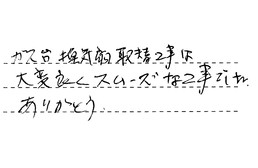 ガス台換気扇取替工事は
大変良くスムーズな工事でした
ありがとう